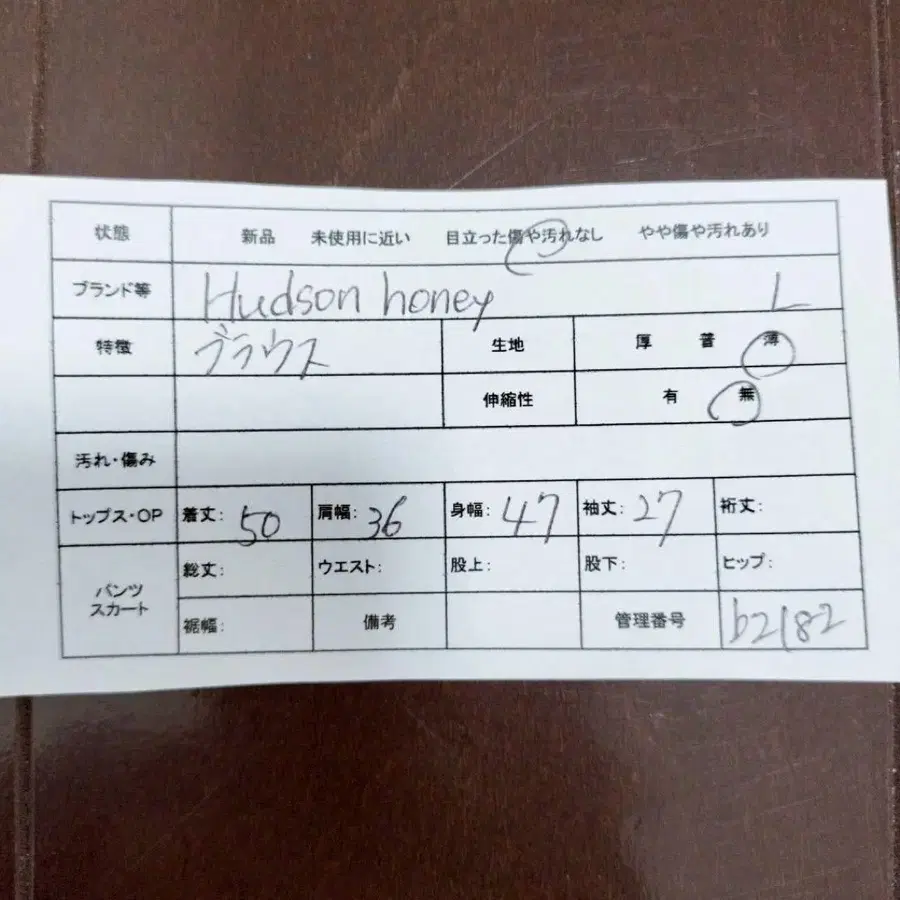 状態 新品 未使用に近い 目立った傷や汚れなし やや傷や汚れあり
ブランド等 Hudson honey L
特徴 ブラウス 生地 厚 普 薄
伸縮性 有 無
汚れ・傷み
トップス・OP 着丈: 50 肩幅: 36 身幅: 47 袖丈: 27 裄丈:
パンツ スカート 総丈: ウエスト: 股上: 股下: ヒップ:
裾幅: 備考 管理番号 b2182